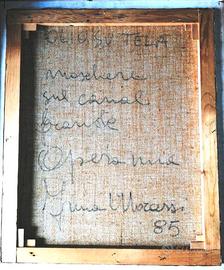 OLIO SU TELA
maschere
sul canal
grande
Opera mia
85